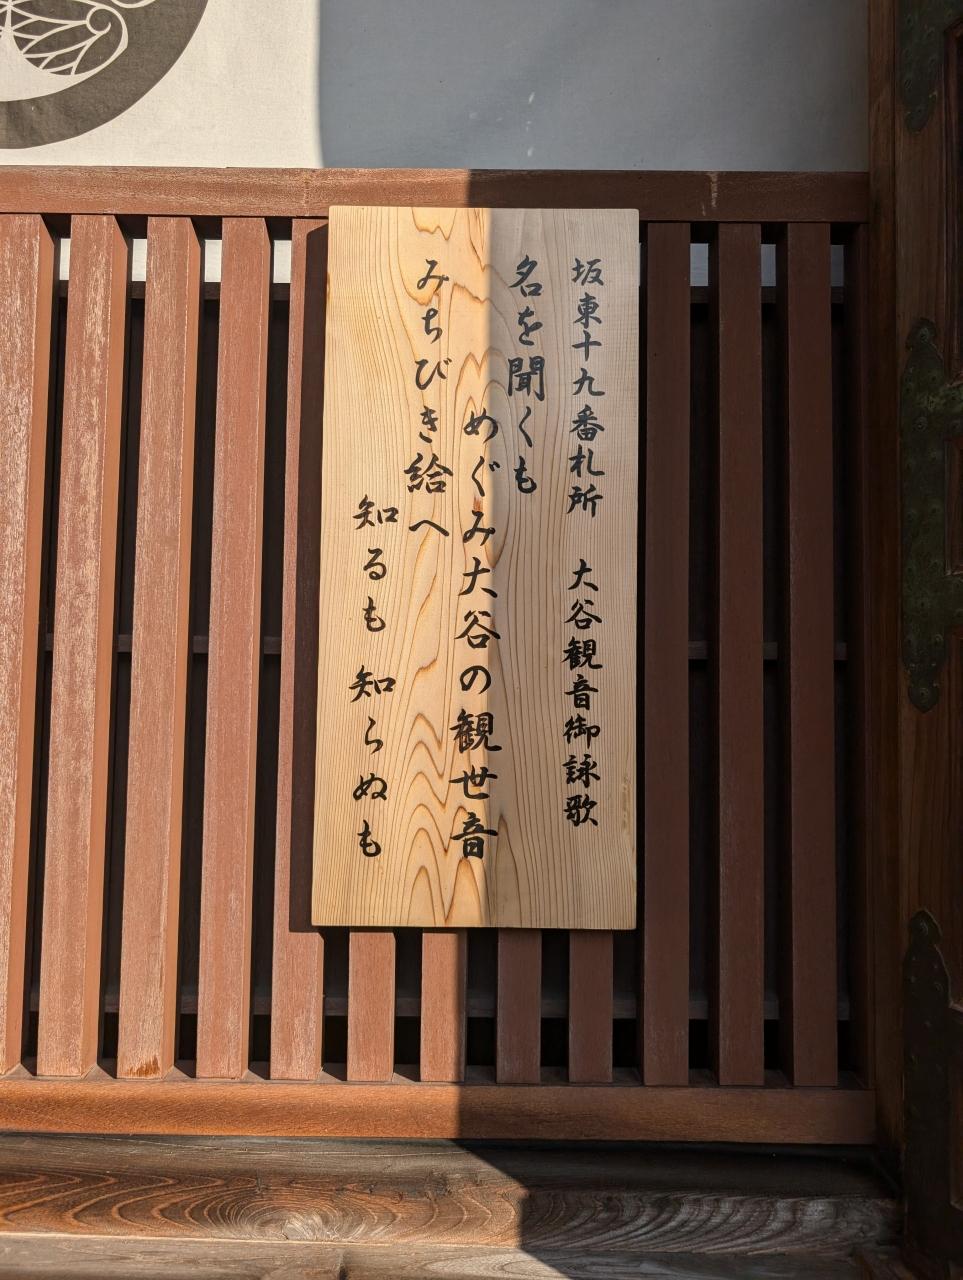 坂東十九番札所　大谷観音御詠歌
名を聞くも
めぐみ大谷の観世音
みちびき給へ
知るも知らぬも